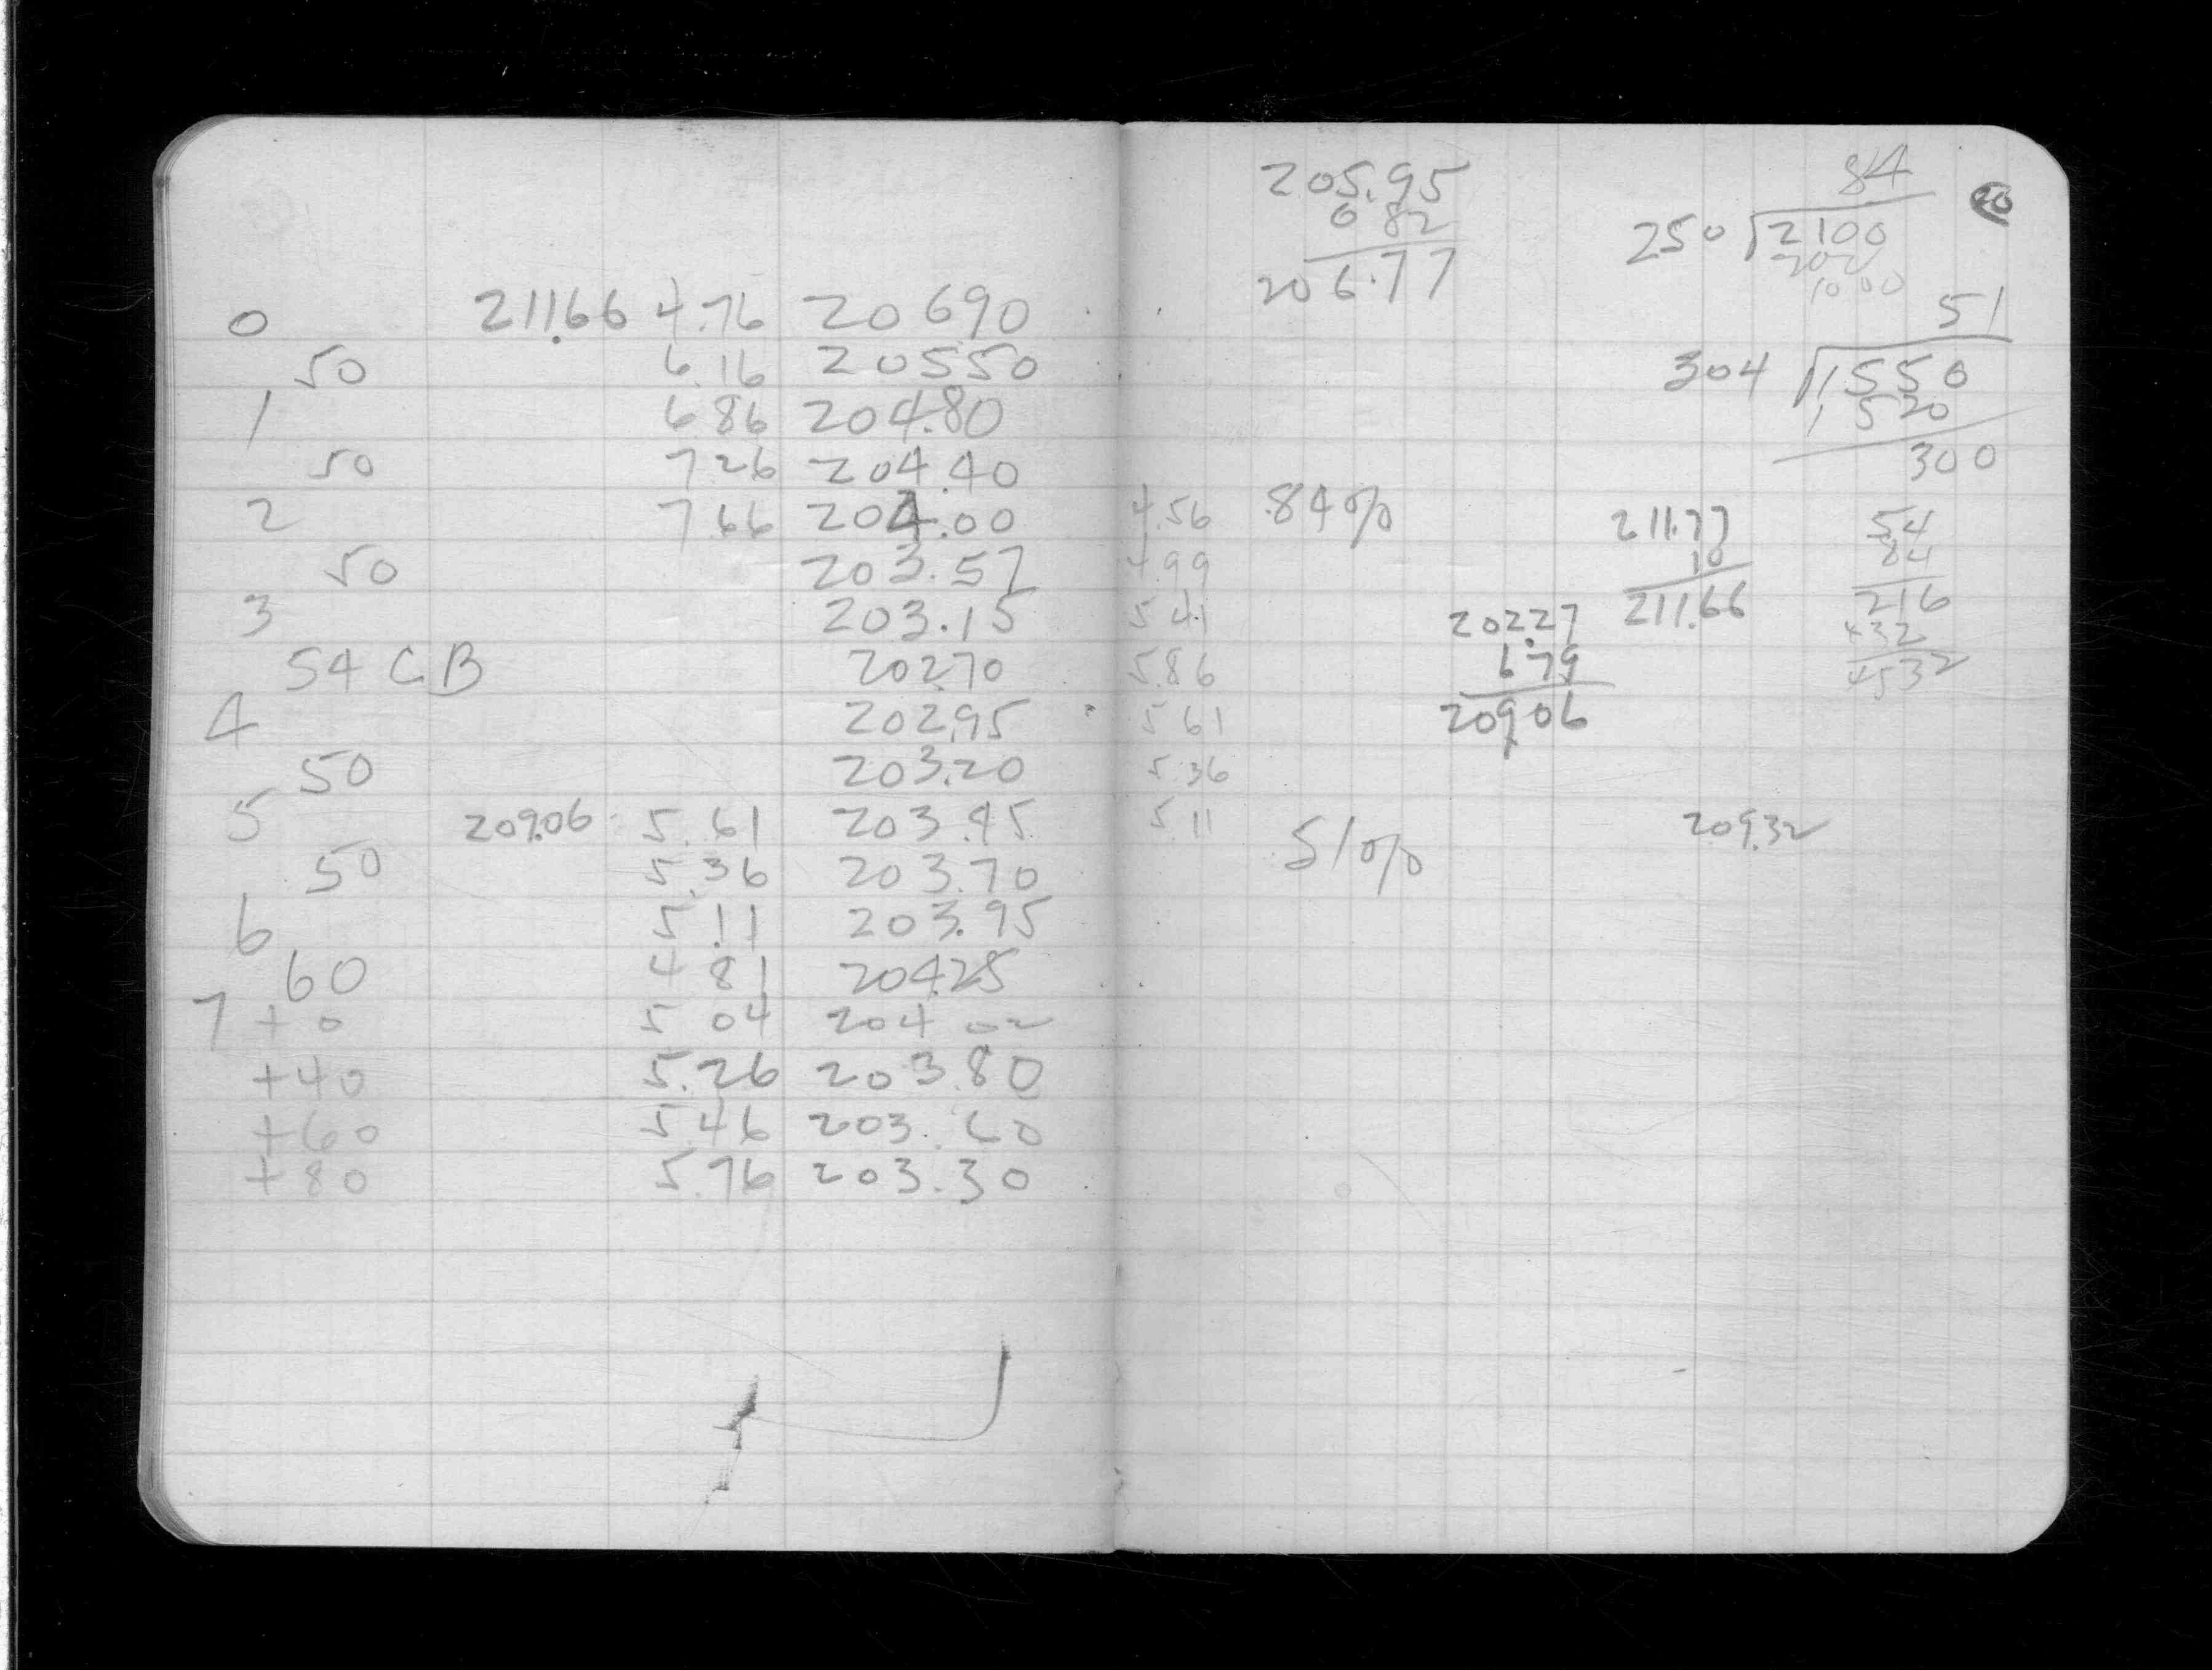 0 211.66 4.76 20690
50 6.16 20550
1 6 86 204.80
50 7 26 204.40
2 7 66 204.00
50 203.57
3 203.15
54 C B 202.70
4 202.95
50 203.20
5 209.06 5.61 203.45
50 5.36 203.70
6 5.11 203.95
60 4 81 204.25
7 + 0 5 04 204 02
+40 5.26 203.80
+60 5.46 203.60
+80 5.76 203.30
205.95
0 82
206.77
84
250 2100
200
1000
20
51
304 1550
1520
300
4.56 .84%
4.99
5.41
5.86
5 61
5 36
5 11 .51%
211.77
10
211.66
54
84
216
432
4532
202.27
6.79
209.06
209.32